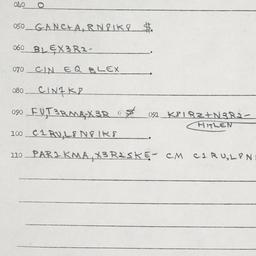 040 O
050 GANCLA, RNPIKP $.
060 BLEX3R2-
070 CIN EQ BLEX
080 CIN1KP
090 FUT3RMA,X3R 092 KPIRZ+N3R2-
HITLEN
100 C1RU,LPNPIKP
110 PAR1KMA,X3R1SKE- CM C1RU,LPN